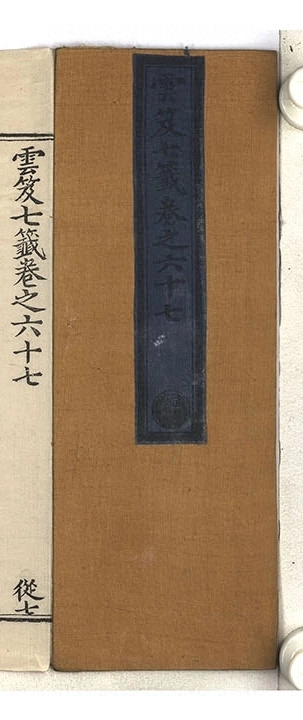 雲笈七籤卷之六十七
雲笈七籤卷之六十七
從七